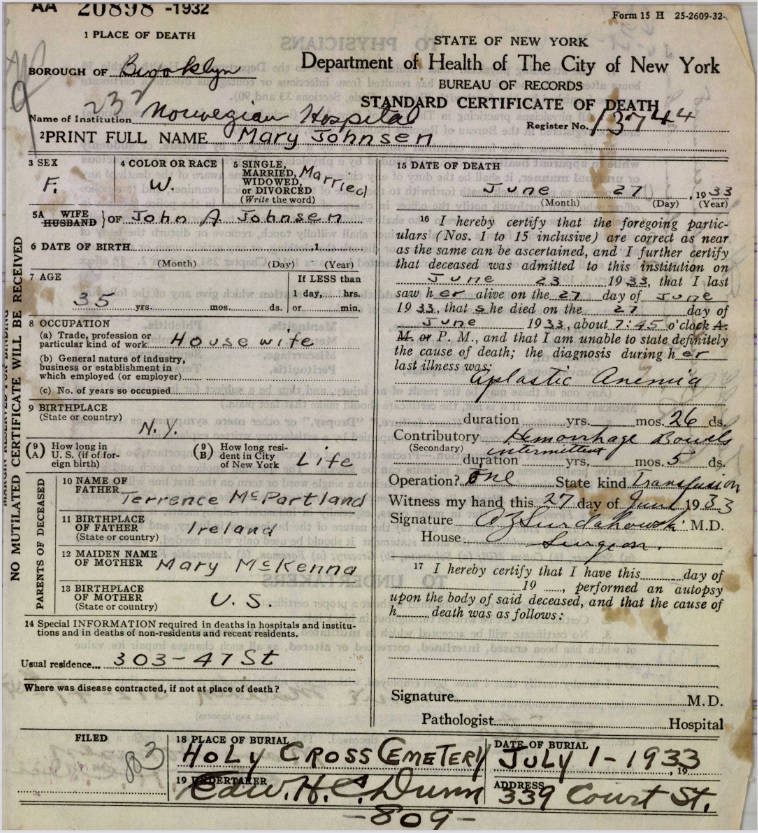 AA 20898 -1932
Form 15 H 25-2609-32-
1 PLACE OF DEATH
STATE OF NEW YORK
BOROUGH OF Brooklyn
Department of Health of The City of New York
BUREAU OF RECORDS
STANDARD CERTIFICATE OF DEATH
237
Name of Institution Norwegian Hospital
Register No. 13744
2 PRINT FULL NAME Mary Johnsen
3 SEX
F.
4 COLOR OR RACE
W.
5 SINGLE,
MARRIED,
WIDOWED,
or DIVORCED
(Write the word)
Married
5A WIFE
HUSBAND } OF John A Johnsen
6 DATE OF BIRTH 1
(Month) (Day) (Year)
7 AGE
35 yrs. mos. ds.
If LESS than
1 day, hrs.
or min.
8 OCCUPATION
(a) Trade, profession or
particular kind of work Housewife
(b) General nature of industry,
business or establishment in
which employed (or employer)
(c) No. of years so occupied
9 BIRTHPLACE
(State or country)
N.Y.
(9 A) How long in
U. S. (if of for-
eign birth)
(9 B) How long resi-
dent in City
of New York Life
NO MUTILATED CERTIFICATE WILL BE RECEIVED
PARENTS OF DECEASED
10 NAME OF
FATHER Terrence McPartland
11 BIRTHPLACE
OF FATHER
(State or country) Ireland
12 MAIDEN NAME
OF MOTHER Mary McKenna
13 BIRTHPLACE
OF MOTHER
(State or country) U.S.
14 Special INFORMATION required in deaths in hospitals and institu-
tions and in deaths of non-residents and recent residents.
Usual residence 303-47 St
Where was disease contracted, if not at place of death?
15 DATE OF DEATH
June 27, 1933
(Month) (Day) (Year)
16 I hereby certify that the foregoing partic-
ulars (Nos. 1 to 15 inclusive) are correct as near
as the same can be ascertained, and I further certify
that deceased was admitted to this institution on
June 23 1933, that I last
saw her alive on the 27 day of June
1933, that she died on the 27 day of
June 1933, about 7:45 o'clock A.
M. or P. M., and that I am unable to state definitely
the cause of death; the diagnosis during her
last illness was:
Aplastic Anemia
duration yrs. mos. 26 ds.
Contributory Hemorrhage Bowels
(Secondary) intermittent
duration yrs. mos. 5 ds.
Operation? One State kind Transfusion
Witness my hand this 27 day of June 1933
Signature M.D.
House Surgeon.
17 I hereby certify that I have this day of
19 , performed an autopsy
upon the body of said deceased, and that the cause of
h death was as follows:
Signature M.D.
Pathologist Hospital
FILED
183
18 PLACE OF BURIAL
HOLY CROSS CEMETERY
DATE OF BURIAL
JULY 1-1933, 19
19 UNDERTAKER
Edw. H. C. Dunn
ADDRESS
339 Court St.
-809-